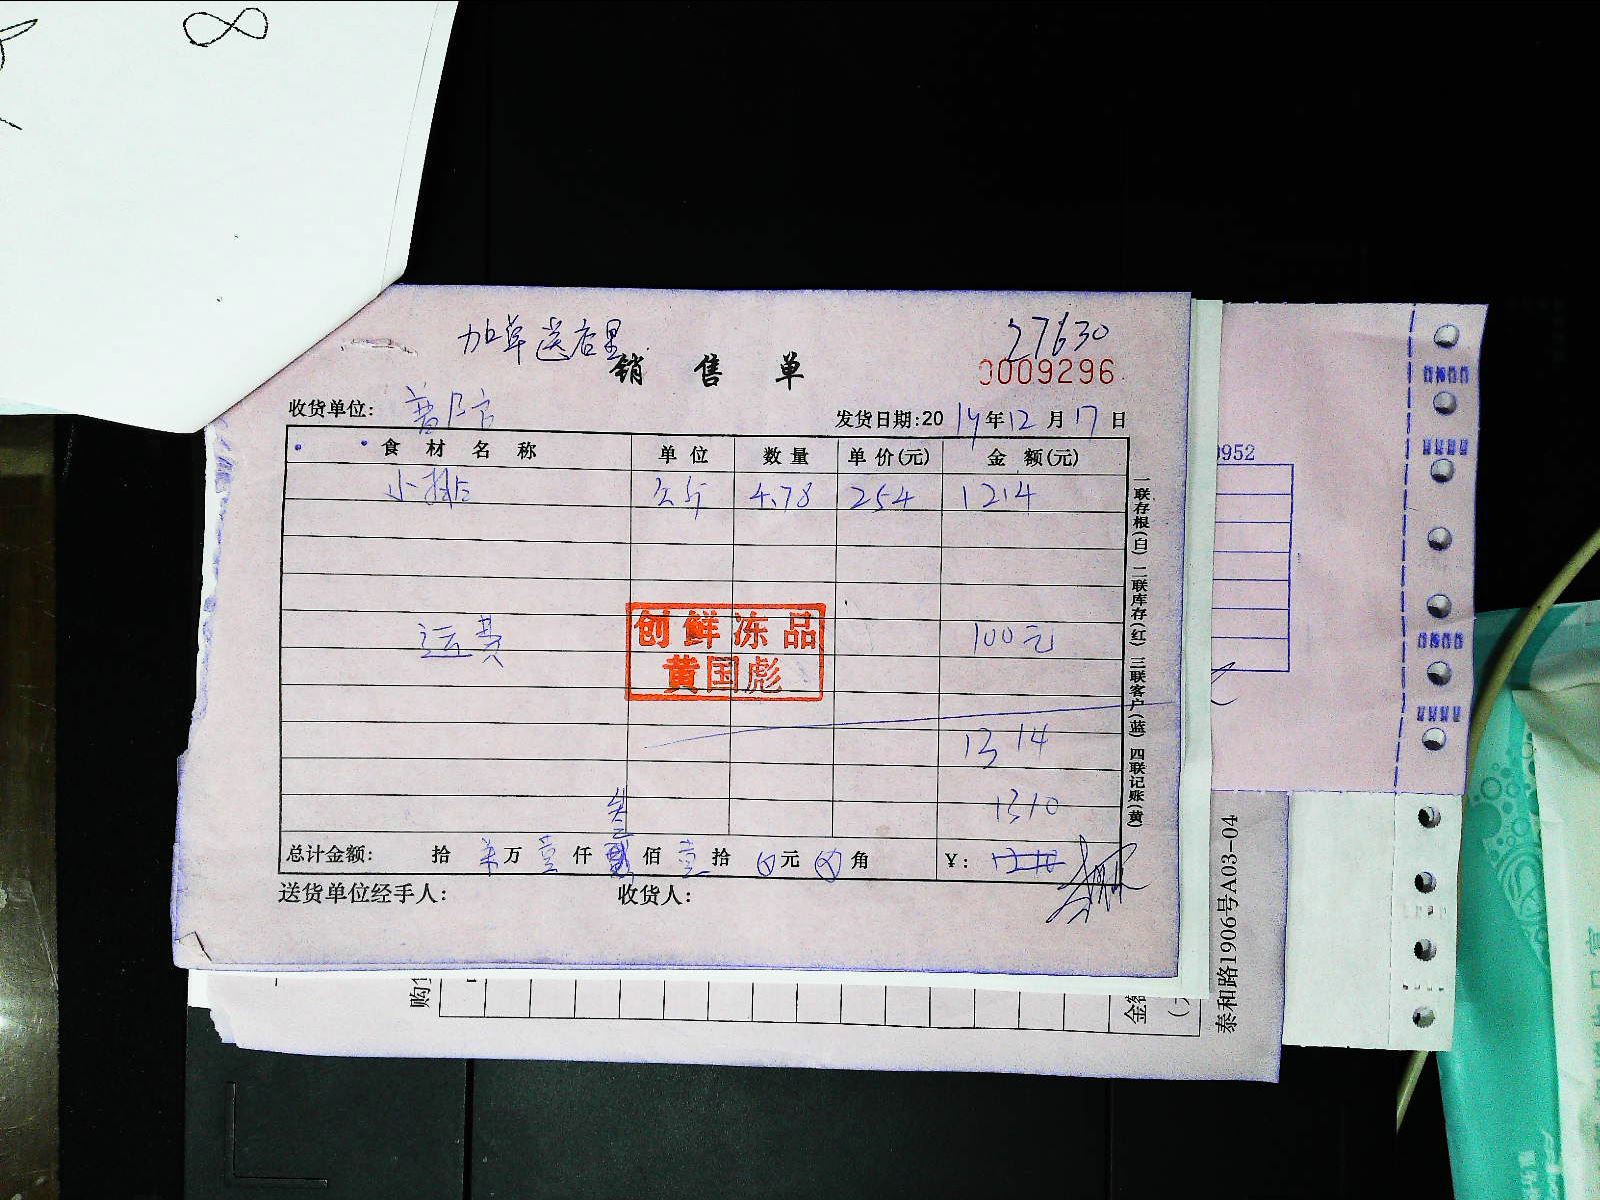 加单送店里
27630
销售单
0009296
收货单位：
发货日期:2014年12月17日
食材名称 单位 数量 单价(元) 金额(元)
小排 公斤 4.78 254 1214
运费 100元
创鲜冻品
黄国彪
1314
1310
总计金额： 拾 万 壹 仟 叁 佰 壹 拾 元 角 ¥：
送货单位经手人： 收货人：
一联存根(白) 二联库存(红) 三联客户(蓝) 四联记账(黄)
0952
泰和路1906号A03-04